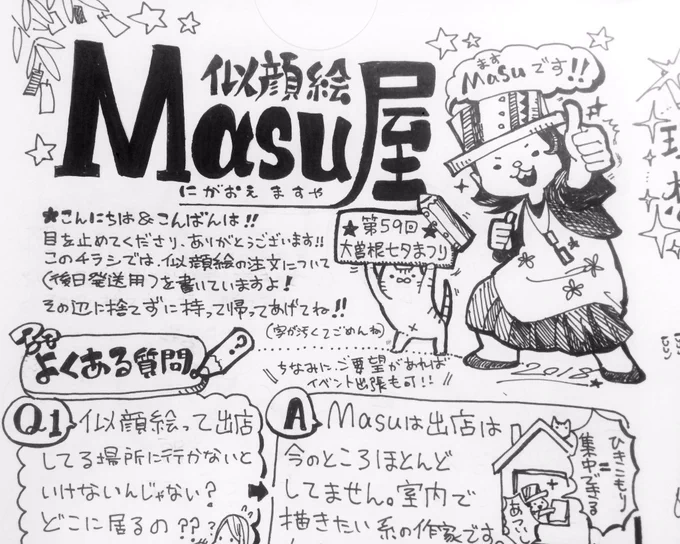 似顔絵
Masu屋
にがおえ ますや
ます
Masuです!!
★こんにちは&こんばんは!!
目を止めてくださり、ありがとうございます!!
このチラシでは、似顔絵の注文について
(後日発送用)を書いていますよ!
その辺に捨てずに持って帰ってあげてね!!
(字が汚くてごめんね)
★第59回★
大曽根七夕まつり
2018
ちなみに、ご要望があれば
イベント出張も可!!
よくある質問
?
Q1
似顔絵って出店
してる場所に行かないと
いけないんじゃない?
どこに居るの??
A
Masuは出店は
今のところほとんど
してません。室内で
描きたい系の作家です
ひきこもり
=
集中できる